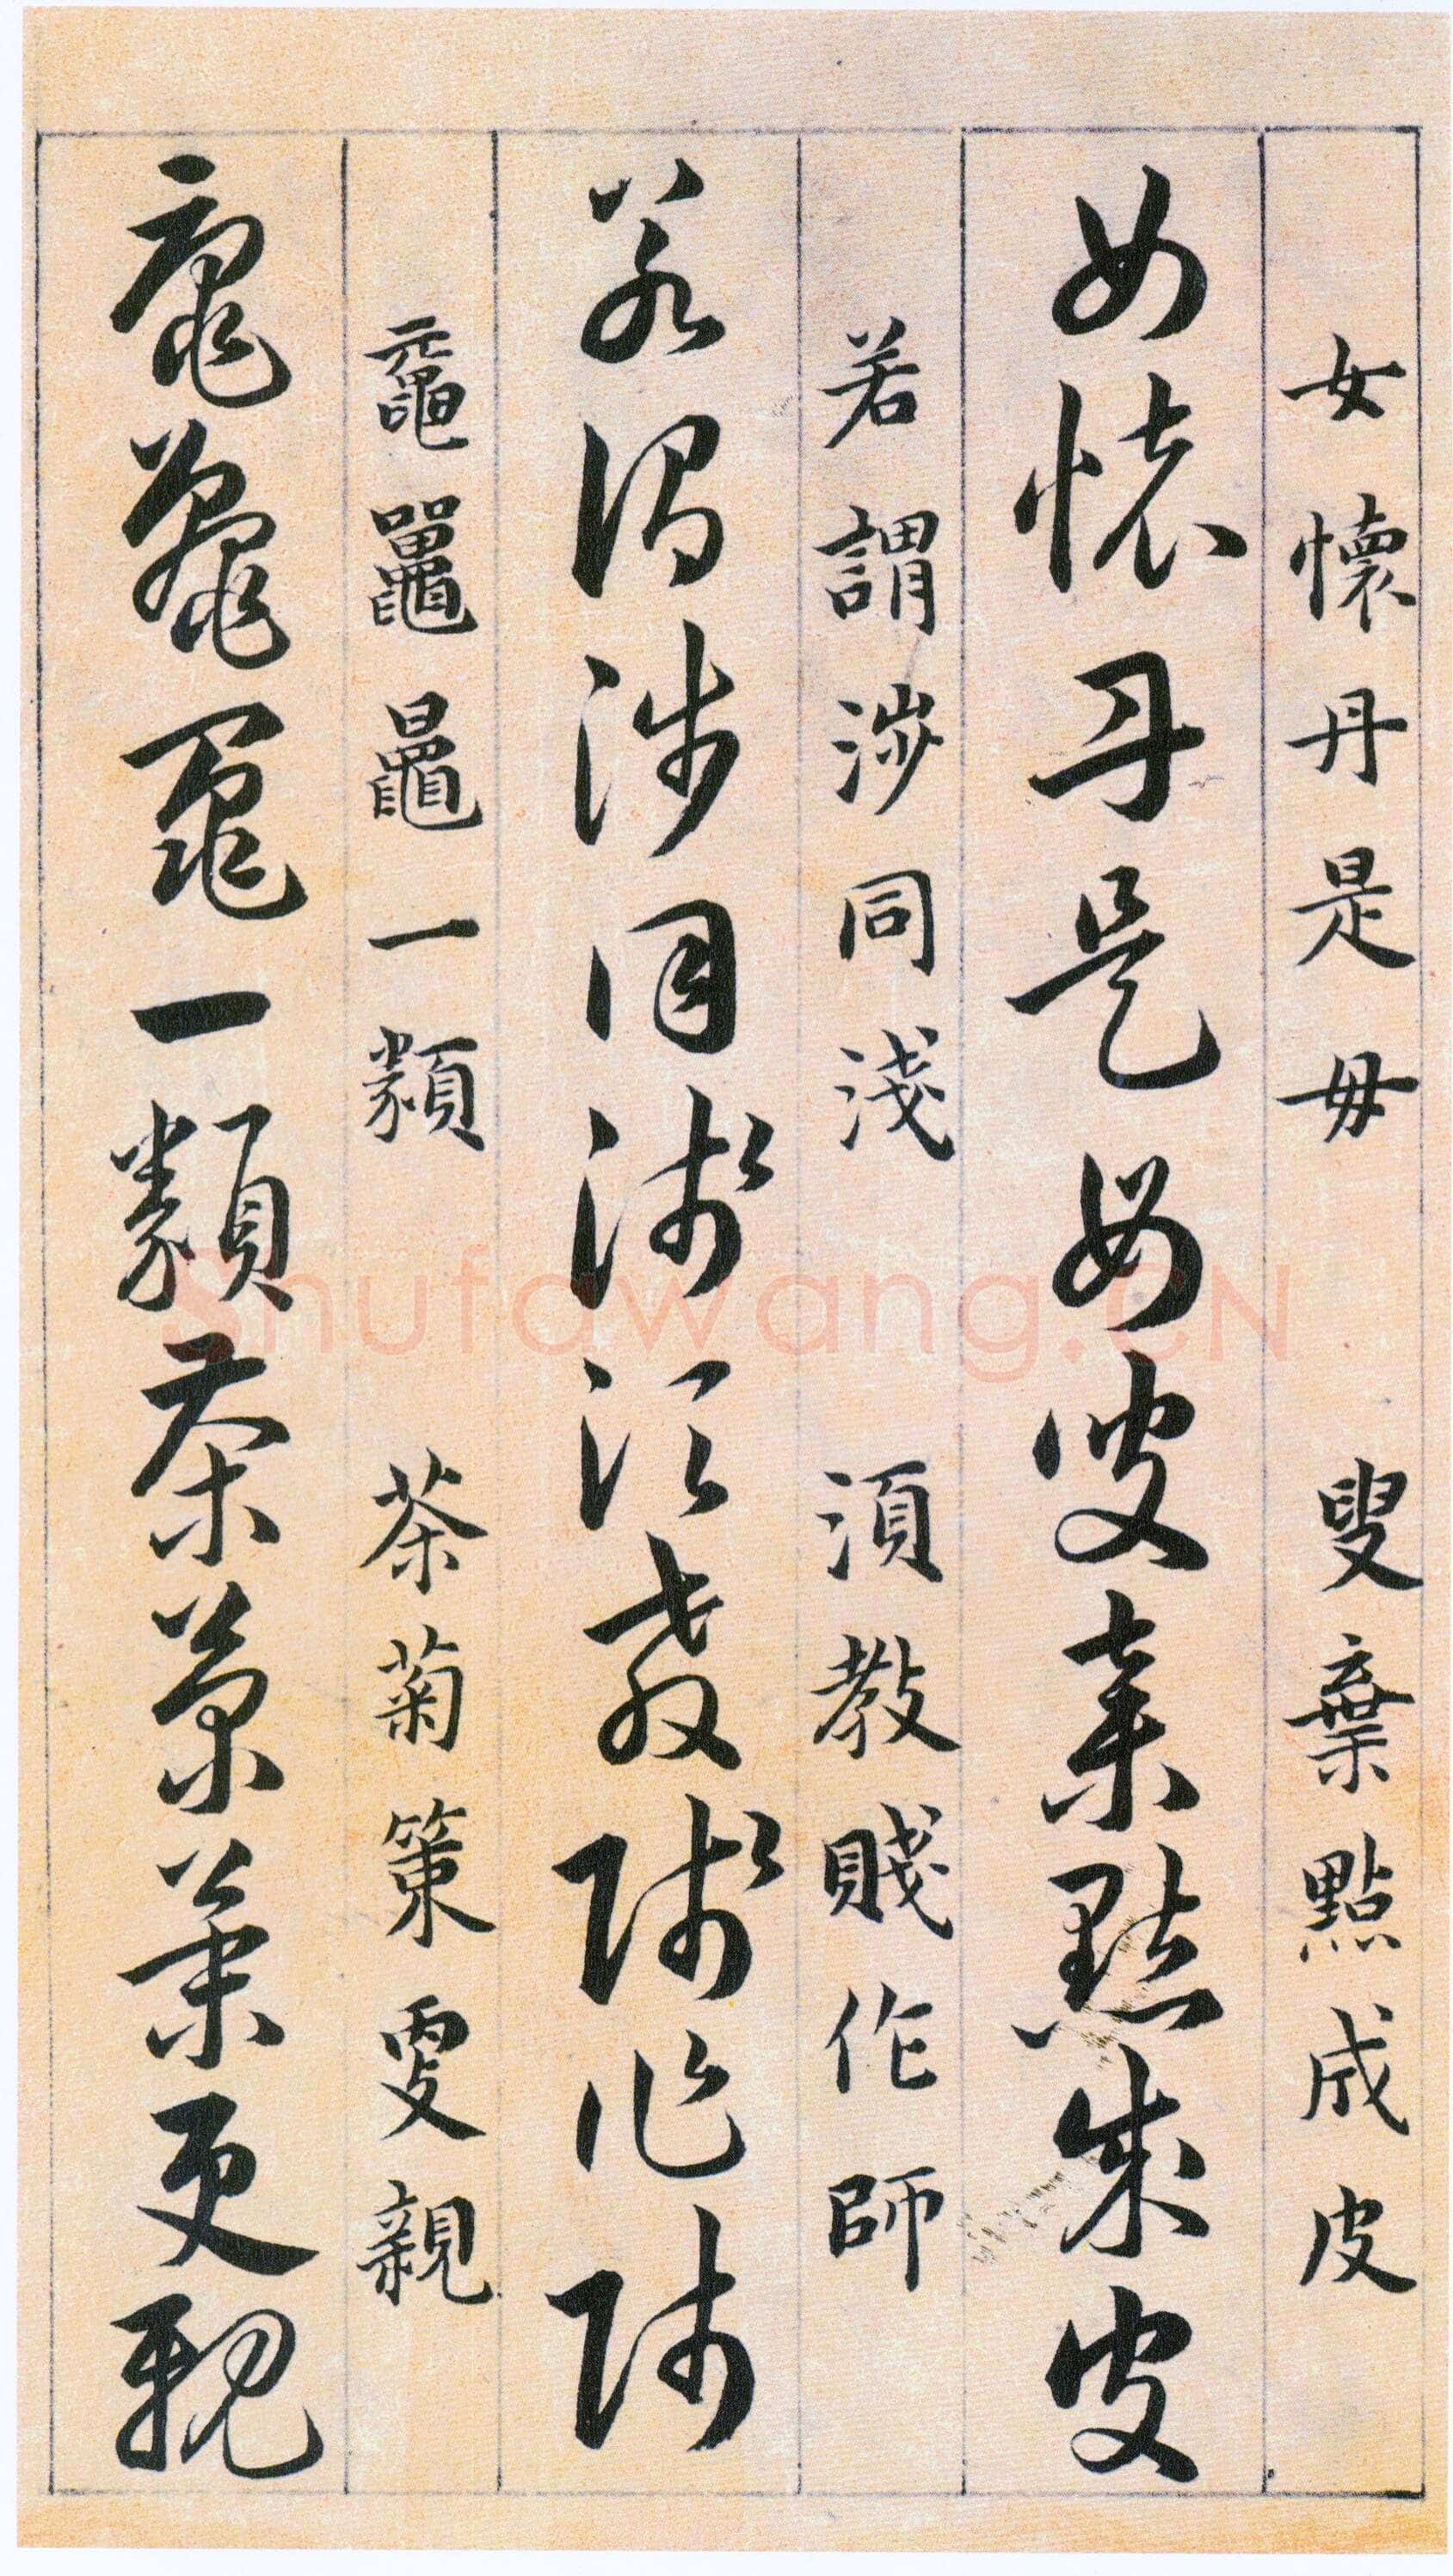 女懷丹是毋 叟棄點成皮
女懷丹是毋叟棄點成皮
若謂涉同淺 須教賤作師
若謂涉同淺須教賤作師
黿鼉鼂一類 茶菊策更親
黿鼉鼂一類茶菊策更親
Shufawang.CN